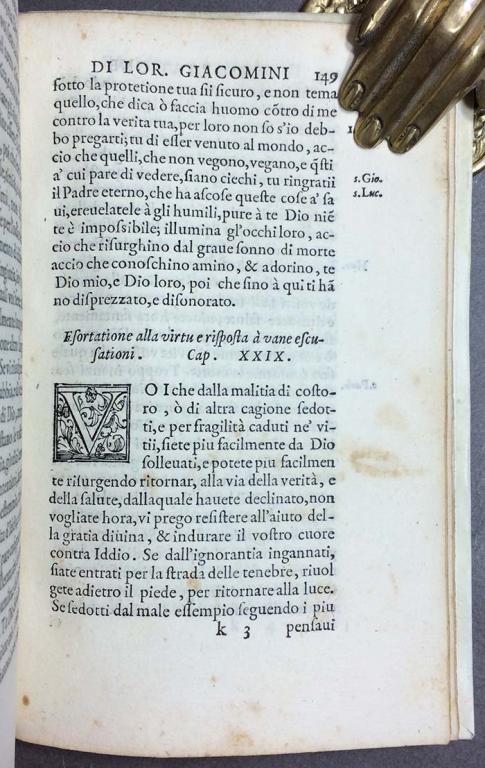 DI LOR. GIACOMINI 149
ſotto la protetione tua ſii ſicuro, e non tema
quello, che dica ò faccia huomo cõtro di me
contro la verita tua, per loro non ſo s'io deb-
bo pregarti; tu di eſſer venuto al mondo, ac-
cio che quelli, che non vegono, vegano, e q̃ſti
a' cui pare di vedere, ſiano ciechi, tu ringratii
il Padre eterno, che ha aſcoſe queſte coſe a' ſa
ui, ereuelatele à gli humili, pure à te Dio niẽ
te è impoſsibile; illumina gl'occhi loro, ac-
cio che riſurghino dal graue ſonno di morte
accio che conoſchino amino, & adorino, te
Dio mio, e Dio loro, poi che ſino à qui ti hã
no diſprezzato, e diſonorato.
s. Gio.
s. Luc.
Eſortatione alla virtu e riſpoſta à vane eſcu-
ſationi. Cap. XXIX.
VOI che dalla malitia di coſto-
ro, ò di altra cagione ſedot-
ti, e per fragilità caduti ne' vi-
tii, ſiete piu facilmente da Dio
ſolleuati, e potete piu facilmen
te riſurgendo ritornar, alla via della verità, e
della ſalute, dallaquale hauete declinato, non
vogliate hora, vi prego reſiſtere all'aiuto del-
la gratia diuina, & indurare il voſtro cuore
contra Iddio. Se dall'ignorantia ingannati,
ſiate entrati per la ſtrada delle tenebre, riuol
gete adietro il piede, per ritornare alla luce.
Se ſedotti dal male eſſempio ſeguendo i piu
k 3 penſaui